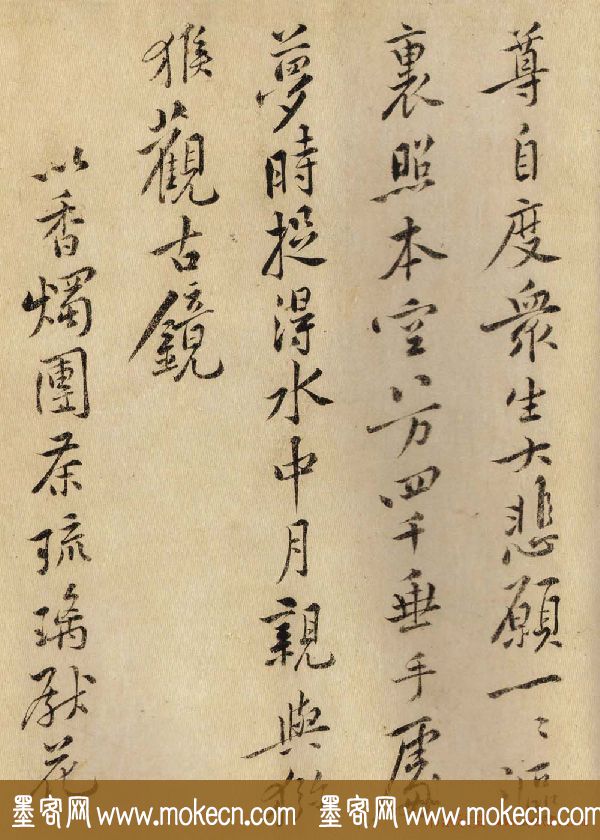 尊自度衆生大悲願一〻漚
裏照本空八万四千垂手處
夢時捉得水中月親與獼
猴觀古鏡
以香燭團茶琉璃獻花
墨客网 www.mokecn.com 墨客网 www.mokecn.com